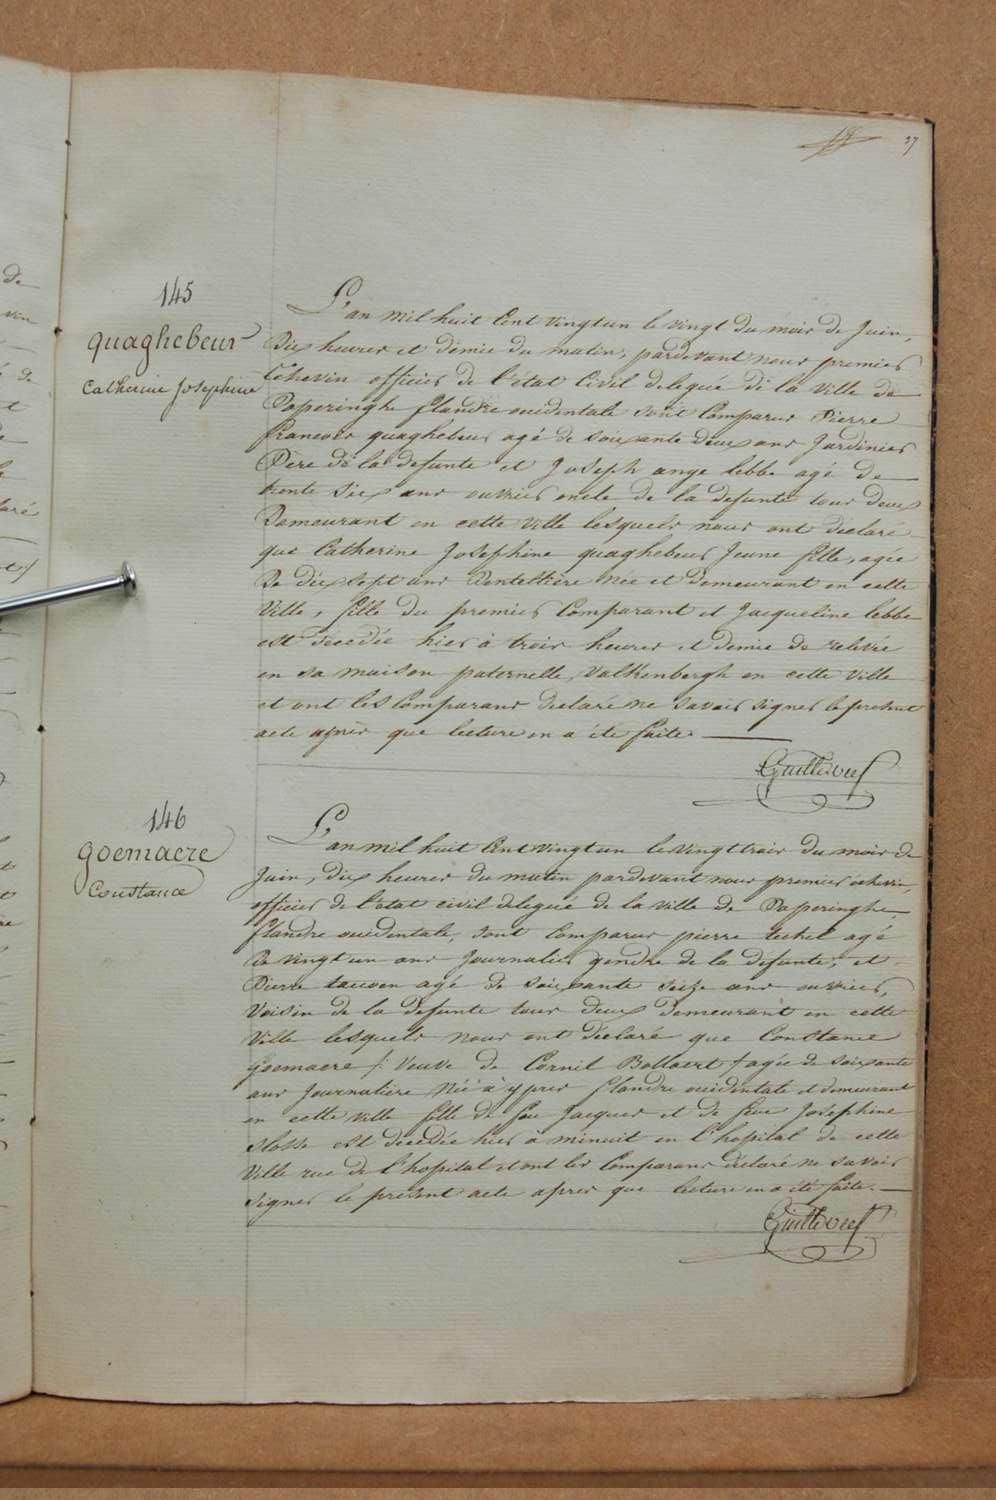 37
145
quaghebeur
Catherine Josephine
L'an mil huit Cent vingt un le vingt du mois de Juin,
Dix heures et demie du matin, pardevant nous premier
Echevin officier de l'état Civil delegué de la Ville de
Poperinghe flandre occidentale sont Comparus Pierre
francois quaghebeur agé de soixante deux ans Jardinier
Père de la defunte et Joseph ange lebbe agé de
trente six ans ouvrier oncle de la defunte tous deux
Demeurant en cette Ville lesquels nous ont declaré
que Catherine Josephine quaghebeur Jeune fille, agée
De dix sept ans Dentellière Née et Demeurant en cette
Ville, fille du premier Comparant et Jacqueline lebbe
est decedée hier à trois heures et demie de relevée
en sa maison paternelle, Valkenbergh en cette Ville
et ont les Comparans declaré ne savoir signer le present
acte après que lecture en a été faite
146
goemaere
Constance
L'an mil huit Cent vingt un le vingt trois du mois de
Juin, dix heures du matin pardevant nous premier échevin,
officier de l'état civil delegué de la Ville de Poperinghe
flandre occidentale, sont Comparus pierre agé
De vingt un ans Journalier gendre de la défunte, et
Pierre agé de soixante seize ans ouvrier,
Voisin de la defunte tous deux demeurant en cette
Ville lesquels nous ont déclaré que Constance
goemaere /: Veuve de Cornil Bollaert :/ agée de soixante
ans Journalière Née à ypres flandre occidentale et demeurant
en cette Ville fille de feu Jacques et de feue Josephine
est decedée hier à minuit en l'hopital de cette
Ville rue de l'hopital et ont les Comparans declaré ne savoir
signer le présent acte apres que lecture en a été faite.